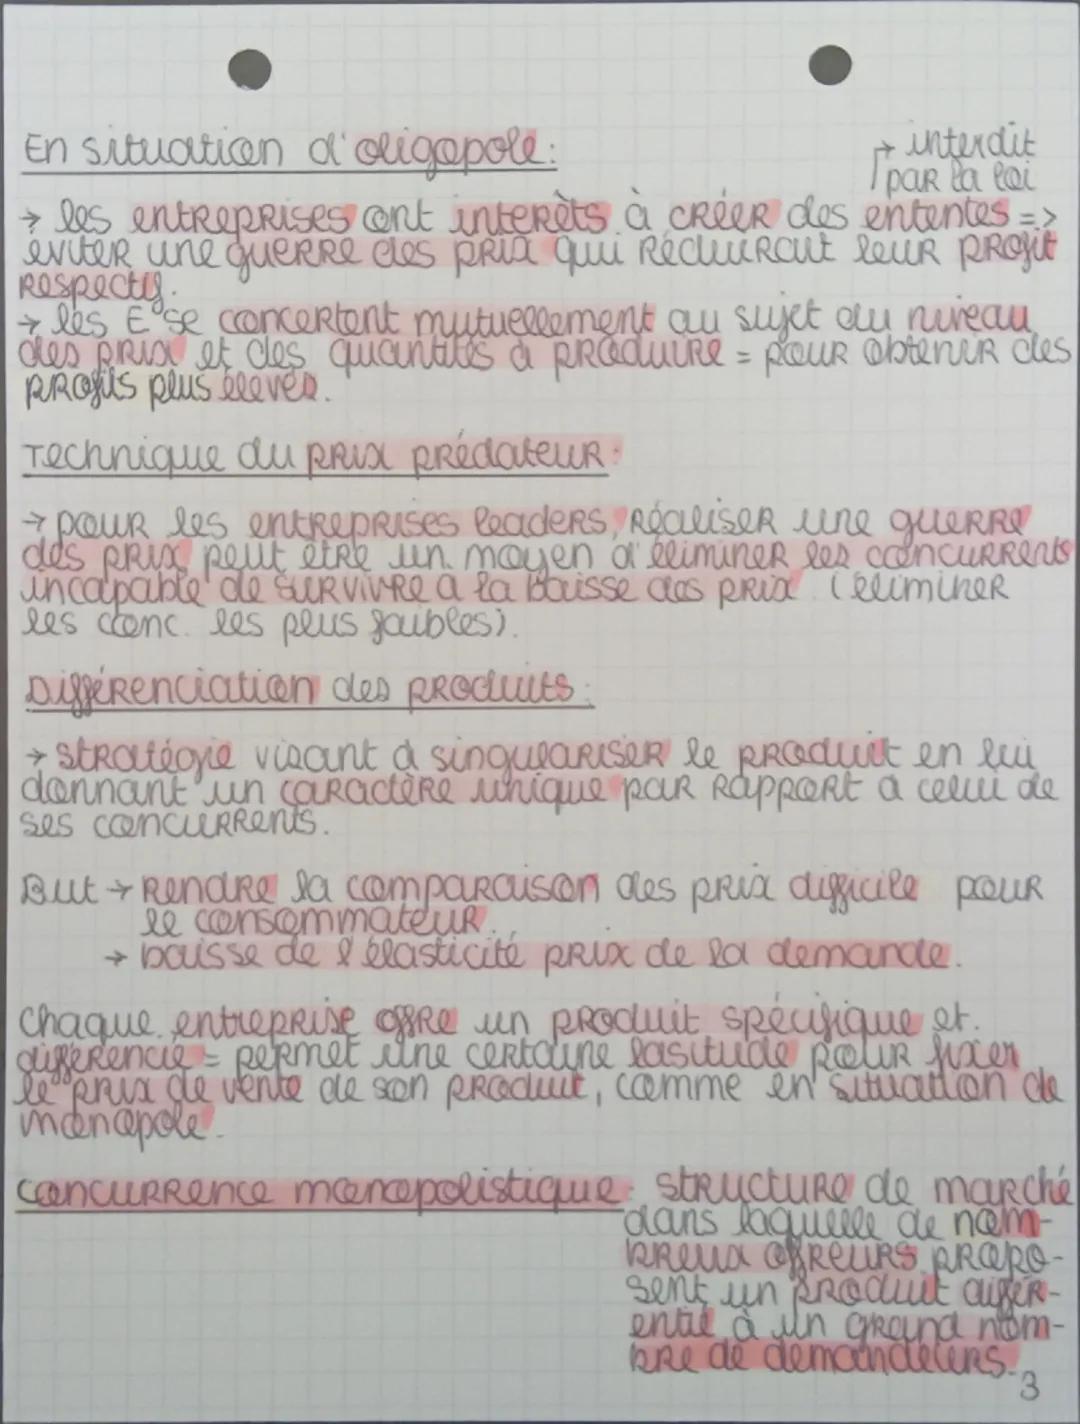 En situation d'oligopole :
→ interdit
par la loi
→ les entreprises ont interêts à créer des ententes =>
eviter une guerre des prix qui réduirait leur profit
respectif.
→ les E° se concertent mutuellement au sujet du niveau
des prix et des quantités à produire = pour obtenir des
profits plus élevés.
Technique du prix prédateur :
→ pour les entreprises leaders, réaliser une guerre
des prix peut être un moyen d'éliminer les concurrents
incapable de survivre a la baisse des prix. (éliminer
les conc. les plus faibles).
Différenciation des produits :
→ stratégie visant à singulariser le produit en lui
donnant un caractère unique par rapport à celui de
ses concurrents.
But → Rendre la comparaison des prix difficile pour
le consommateur.
→ baisse de l'élasticité prix de la demande.
Chaque entreprise offre un produit spécifique et
différencié = permet une certaine lasitude pour fixer
le prix de vente de son produit, comme en situation de
monopole.
Concurrence monopolistique : structure de marché
dans laquelle de nom-
breux offreurs propo-
sent un produit différ-
entié à un grand nom-
bre de demandeurs.
3